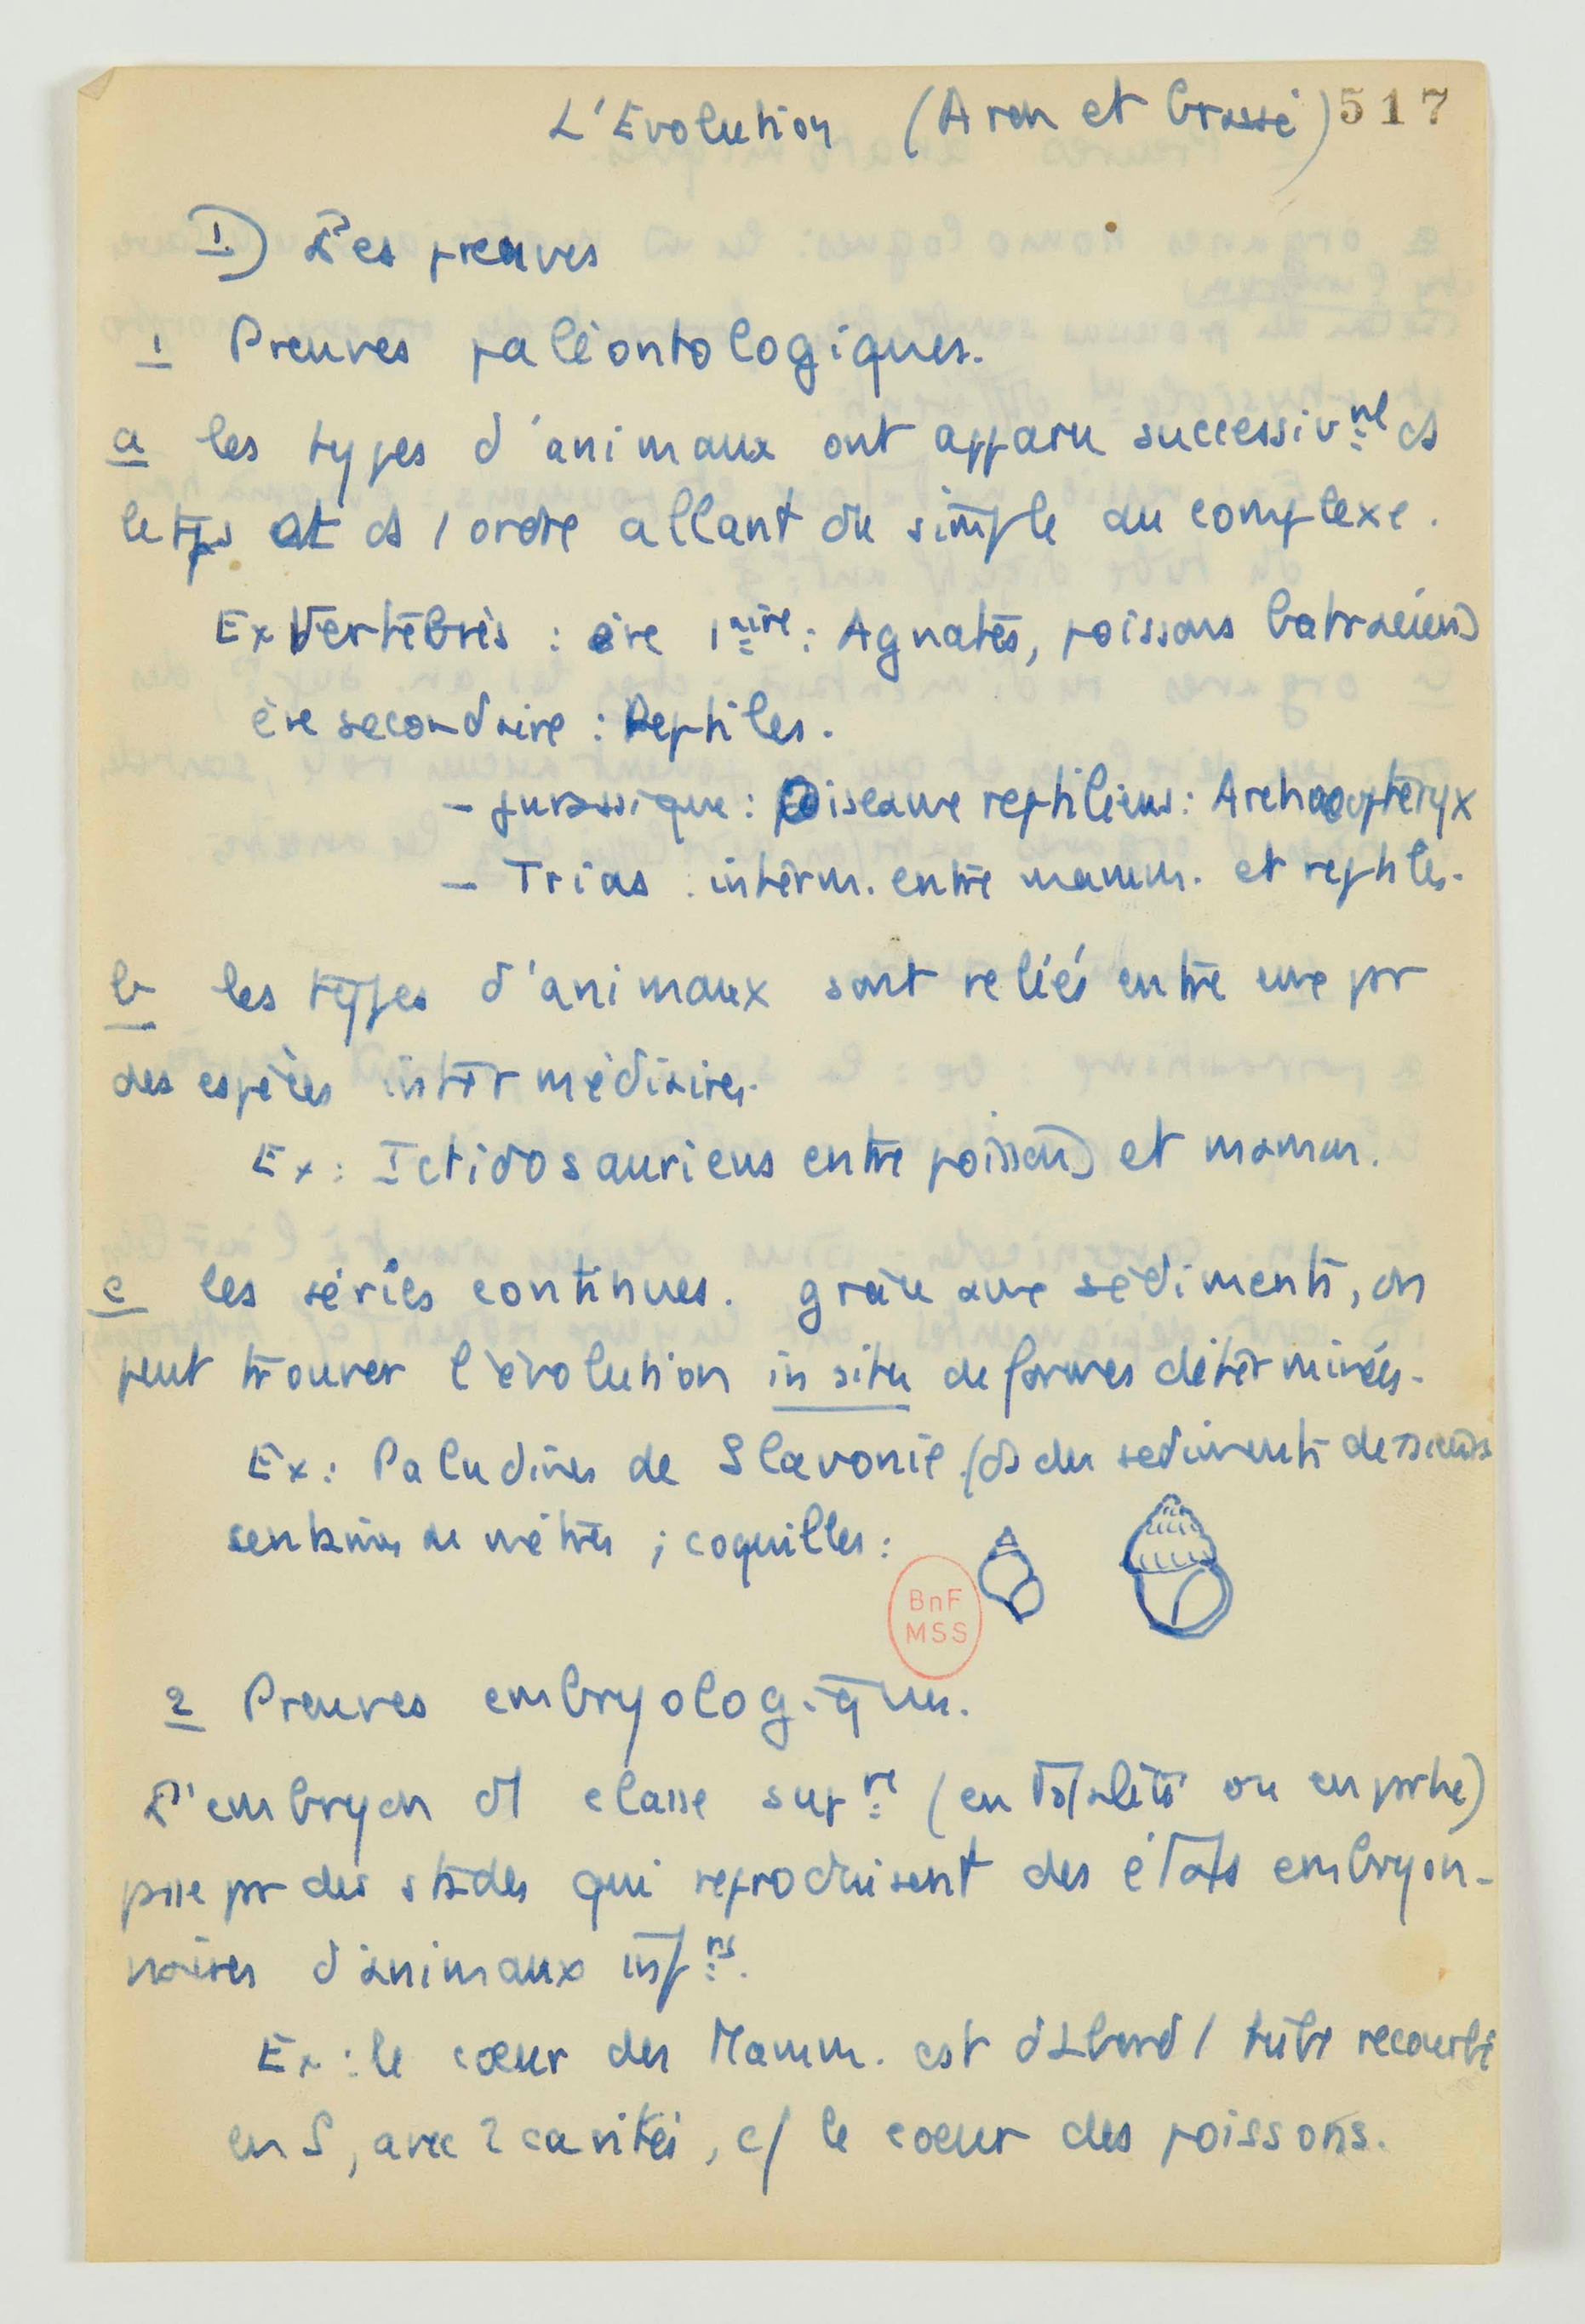 L'Evolution (Aron et Grassé) 517
I) Les preuves
1 Preuves paléontologiques.
a les types d'animaux ont apparu successivnt ds
le tps et ds / ordre allant du simple au complexe.
Ex Vertébrés : ère 1aire : Agnathes, poissons batraciens
ère secondaire : Reptiles.
- jurassique : Oiseaux reptiliens : Archaeoptéryx
- Trias : interm. entre mamm. et reptiles.
b les types d'animaux sont reliés entre eux pr
des espèces intermédiaires.
Ex : Ictidosauriens entre poissons et mamm.
c les séries continues. grâce aux sédiments, on
peut trouver l'évolution in situ de formes déterminées.
Ex : Paludines de Slavonie (ds des sediments de
centaines de mètres ; coquilles :
BnF
MSS
2 Preuves embryologiques.
L'embryon d'1 classe supre (en totalité ou en prtie)
psse pr des stades qui reproduisent des états embryon-
naires d'animaux infrs.
Ex : le cœur des Mamm. est d'abord / tube recourbé
en S, avec 2 cavités, c/ le coeur des poissons.